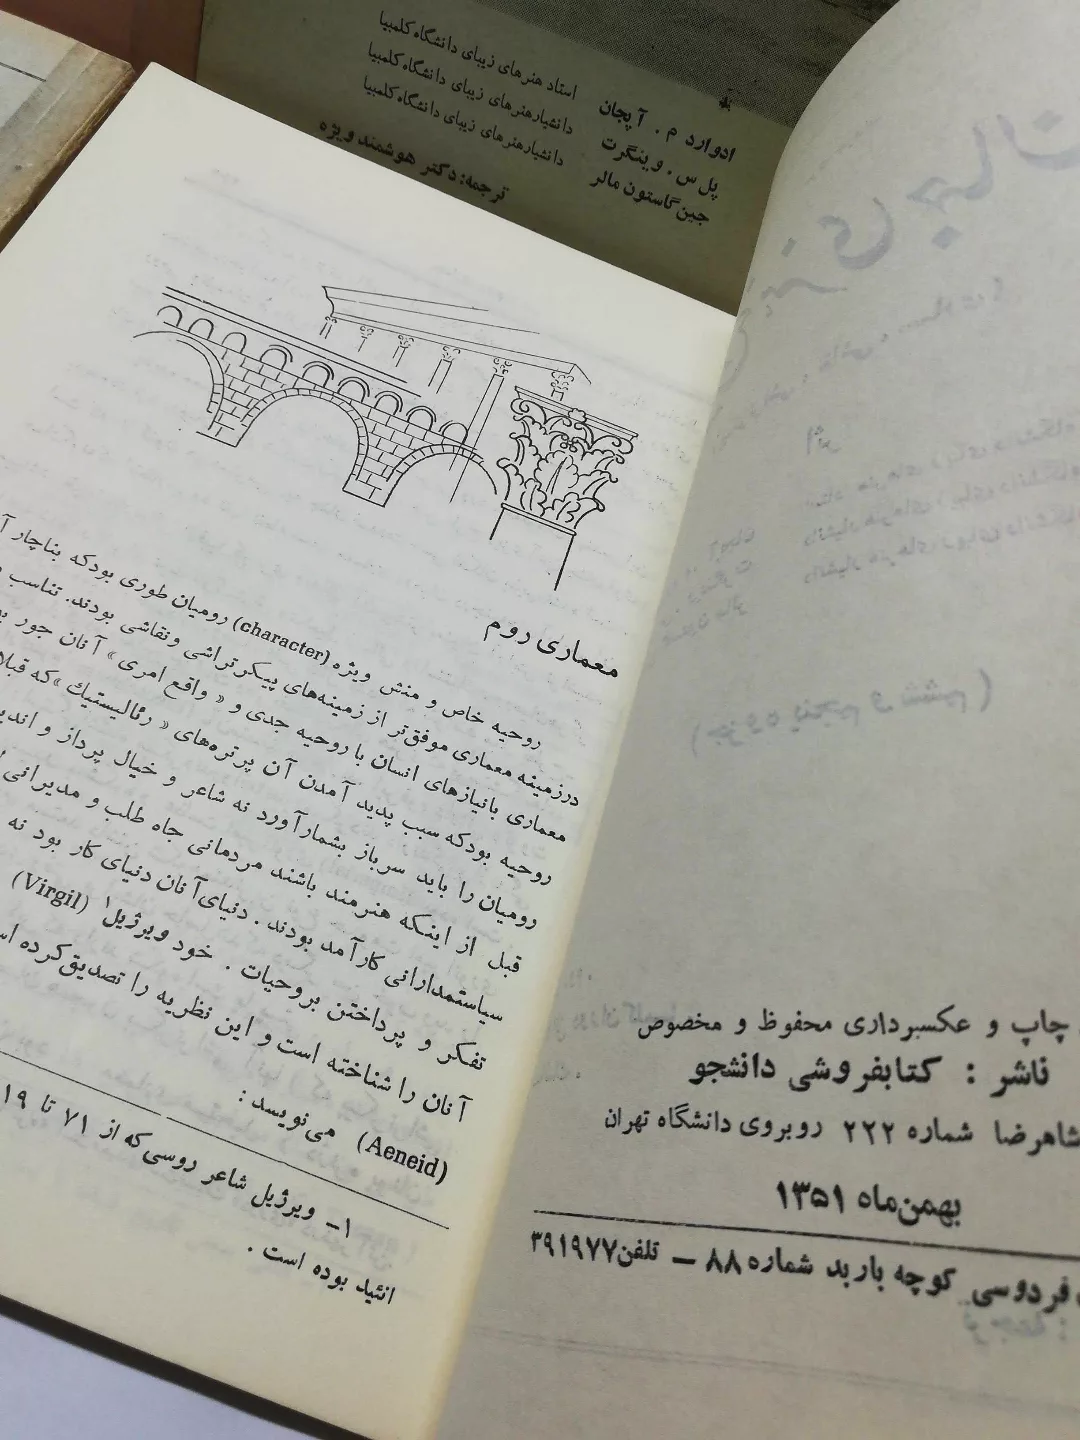 ادوارد م. آپجان استاد هنرهای زیبای دانشگاه کلمبیا
پل س. وینگرت دانشیارهنرهای زیبای دانشگاه کلمبیا
جین گاستون مالر دانشیارهنرهای زیبای دانشگاه کلمبیا
ترجمه: دکتر هوشمند ویژه
معماری روم
روحیه خاص و منش ویژه (character) رومیان طوری بودکه بناچار
درزمینه معماری موفق‌تر از زمینه‌های پیکرتراشی ونقاشی بودند. تناسب
معماری بانیازهای انسان با روحیه جدی و « واقع امری » آنان جور
روحیه بودکه سبب پدید آمدن آن پرتره‌های « رئالیستیك »که قبلا
رومیان را باید سرباز بشمارآورد نه شاعر و خیال پرداز و
قبل از اینکه هنرمند باشند مردمانی جاه طلب و مدیرانی
سیاستمدارانی کارآمد بودند. دنیای‌آنان دنیای کار بود نه
تفکر و پرداختن بروحیات . خود ویرژیل۱ (Virgil)
آنان را شناخته است و این نظریه را تصدیق‌کرده
(Aeneid) می‌نویسد :
۱– ویرژیل شاعر روسی‌که از ۷۱ تا ۱۹
انئید بوده است .
چاپ و عکسبرداری محفوظ و مخصوص
ناشر : کتابفروشی دانشجو
شاهرضا شماره ۲۲۲ روبروی دانشگاه تهران
بهمن‌ماه ۱۳۵۱
فردوسی کوچه باربد شماره ۸۸ – تلفن۳۹۱۹۷۷